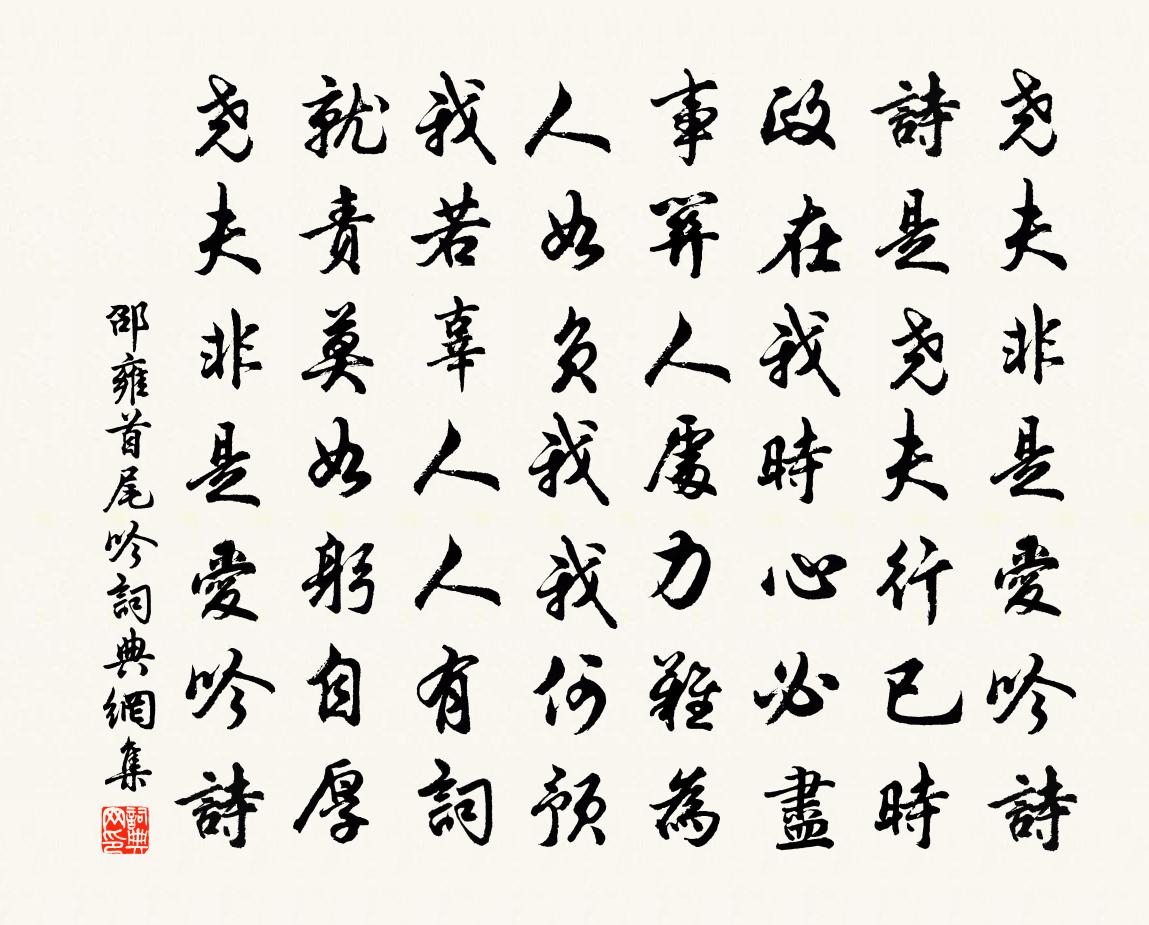 堯夫非是愛吟詩
詩是堯夫行己時
政在我時心必盡
事關人處力難為
人如負我我何預
我若辜人人有詞
就責莫如躬自厚
堯夫非是愛吟詩
邵雍首尾吟詞典網集
詞典网印